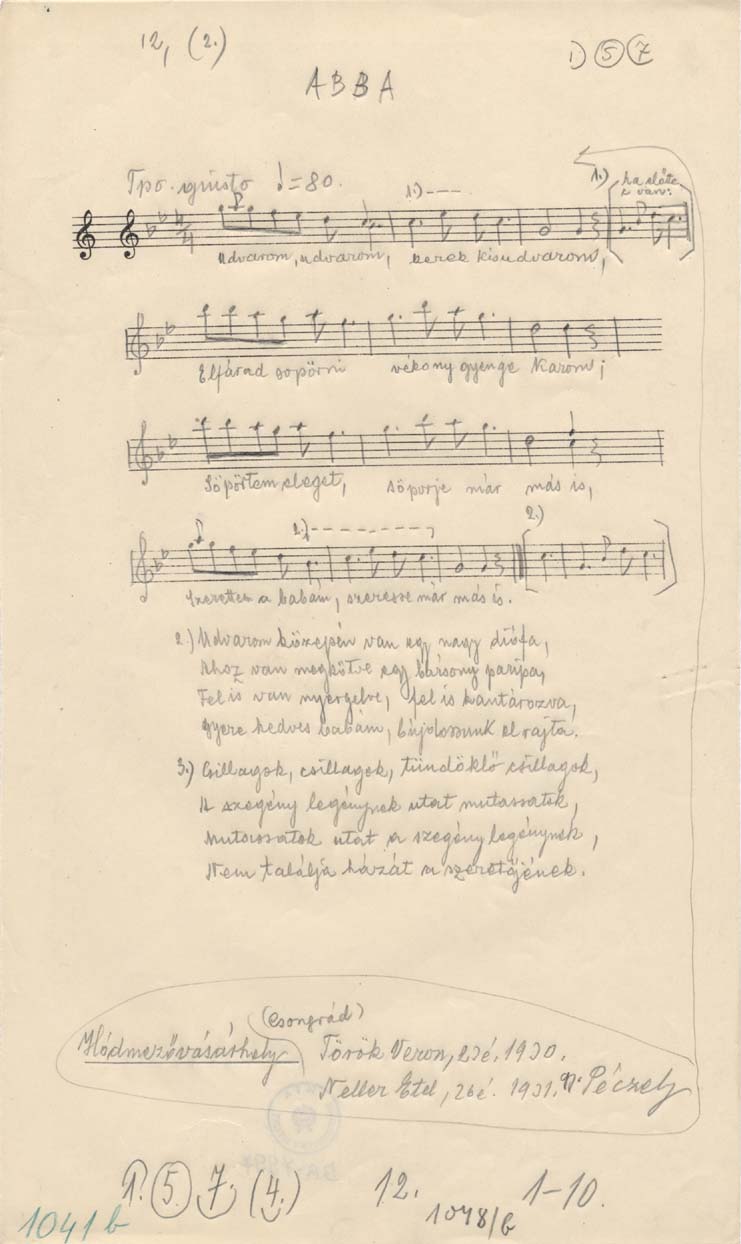 12, (2.)
1) 5 7
ABBA
Tpo. giusto ♩=80.
1.) ---
1.) ha előtte
z van:
4/4
Udvarom, udvarom, kerek kisudvarom,
Elfárad söpörni vékony gyenge karom;
Söpörtem eleget, söpörje már más is,
2.) 2.)
Szerettem a babám, szeresse már más is.
2.) Udvarom közepén van egy nagy diófa,
Ahoz van megkötve egy bársony paripa,
Fel is van nyergelve, fel is kantározva,
Gyere kedves babám, bújdossunk el rajta.
3.) Csillagok, csillagok, tündöklő csillagok,
A szegény legénynek utat mutassatok,
Mutassatok utat a szegény legénynek,
Nem találja házát a szeretőjének.
(Csongrád)
Hódmezővásárhely Török Veron, 23é. 1930.
Neller Etel, 26é. 1931. Péczely
1. 5. 7. (4.) 12. 1-10.
1041 b 1048/b